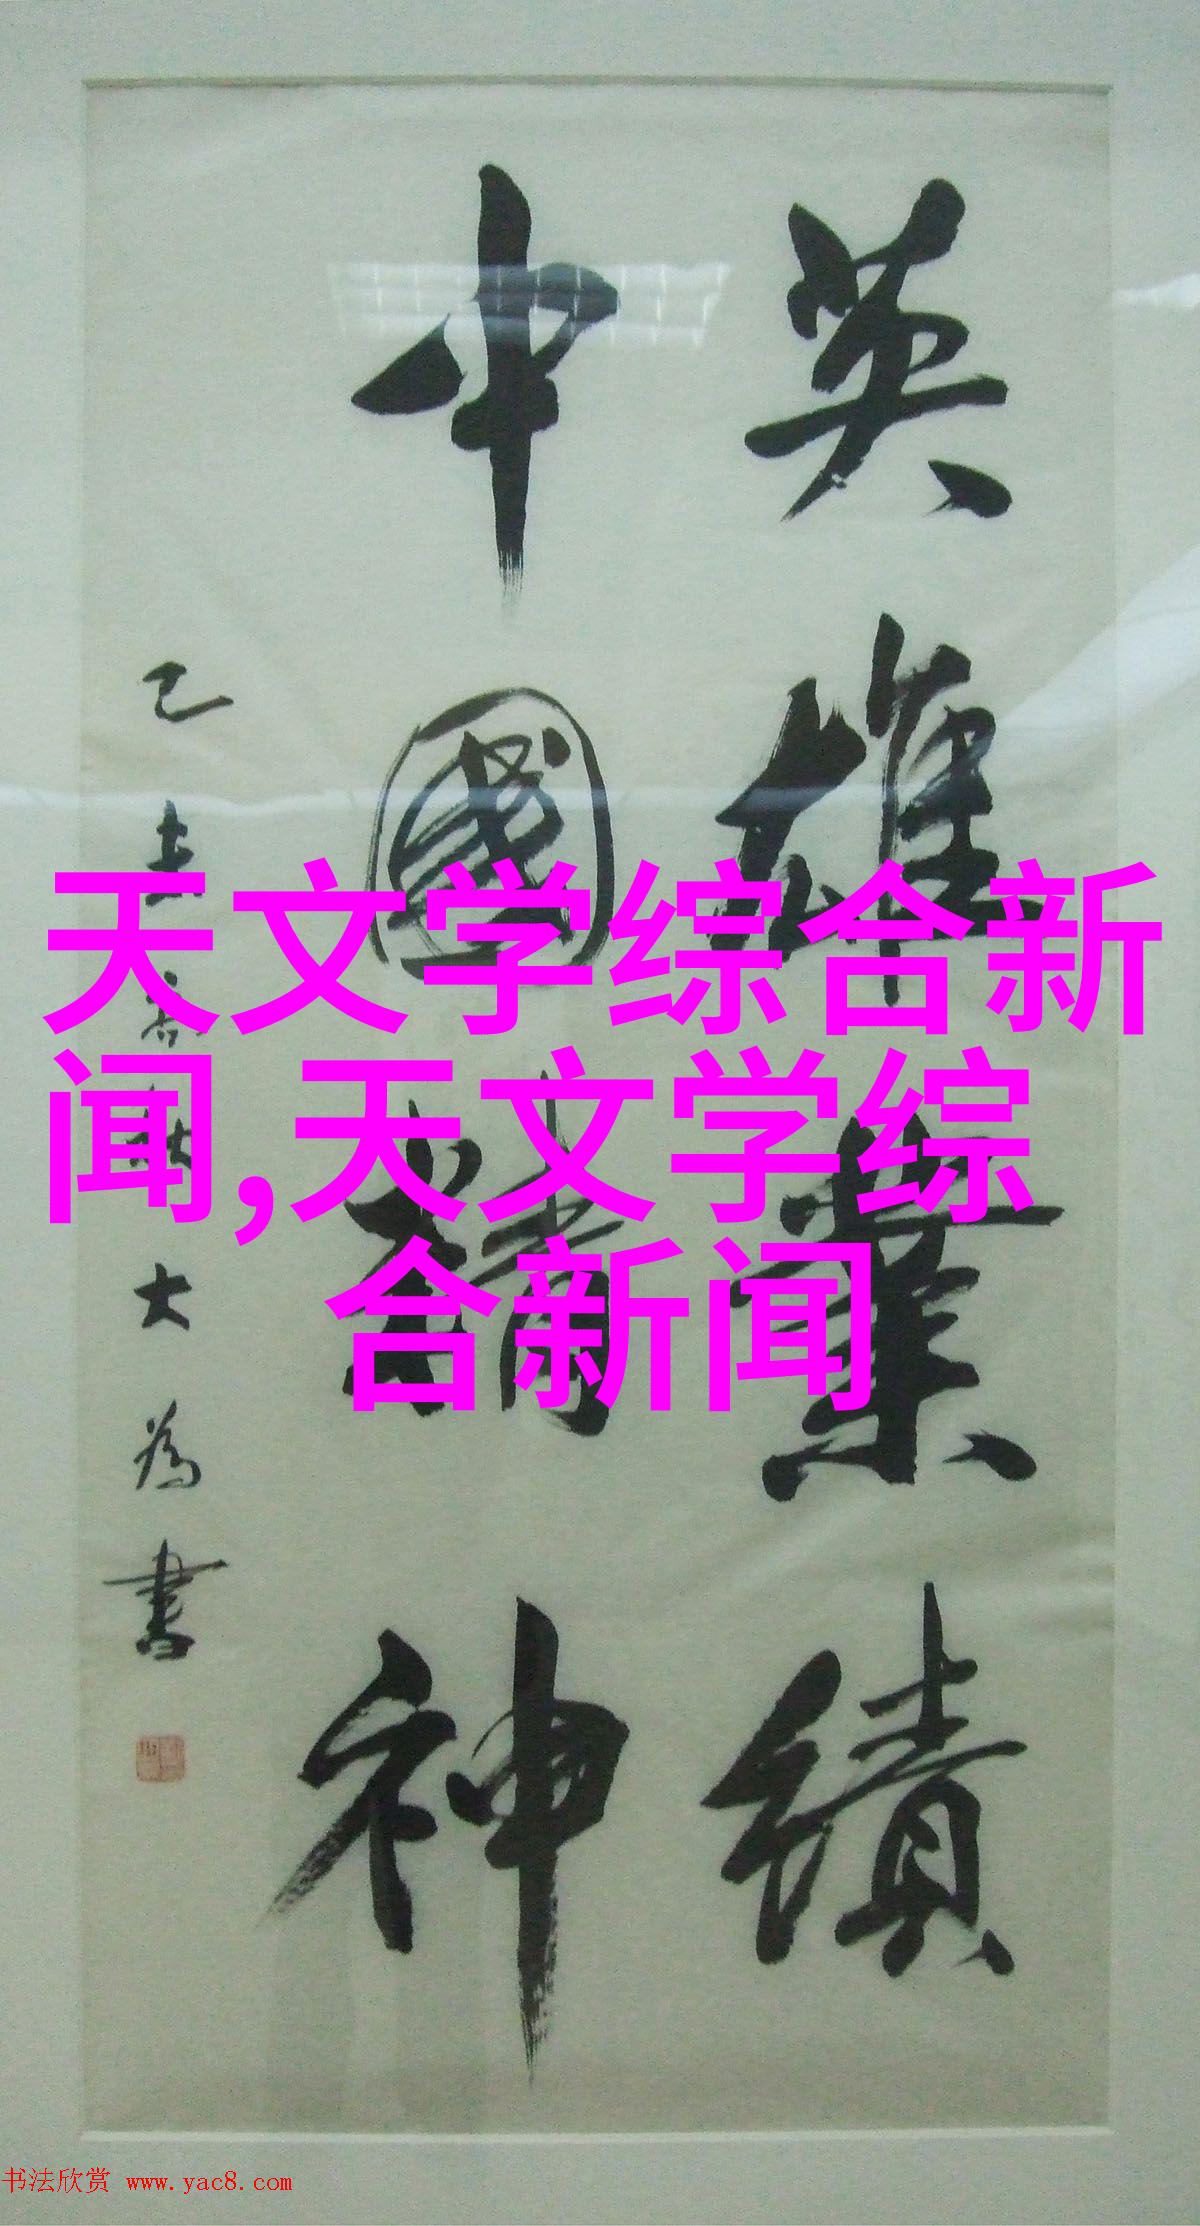 英雄業績
中國精神
己丑春秋大為書
天文学综合新
闻,天文学综
合新闻
书法欣赏 www.yac8.com